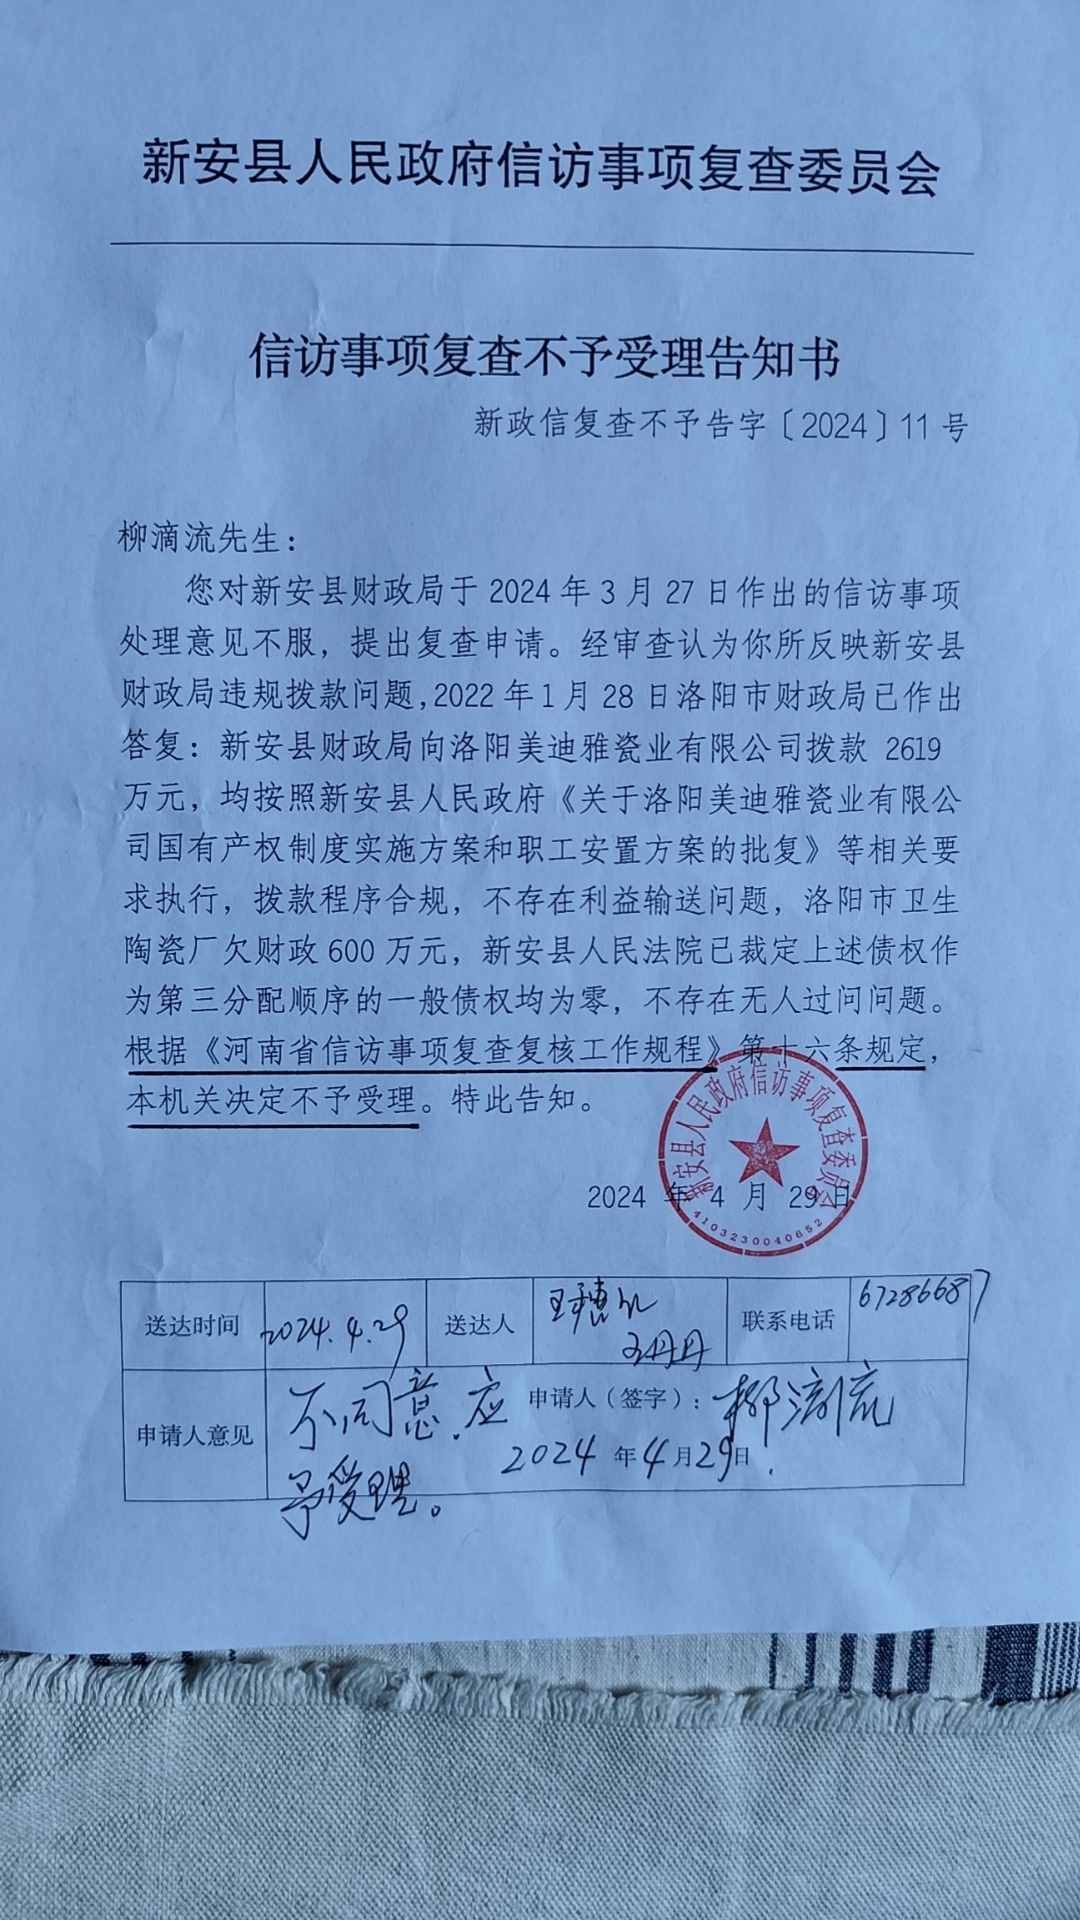 新安县人民政府信访事项复查委员会
信访事项复查不予受理告知书
新政信复查不予告字〔2024〕11 号
柳滴流先生：
您对新安县财政局于 2024 年 3 月 27 日作出的信访事项
处理意见不服，提出复查申请。经审查认为你所反映新安县
财政局违规拨款问题,2022 年 1 月 28 日洛阳市财政局已作出
答复：新安县财政局向洛阳美迪雅瓷业有限公司拨款 2619
万元，均按照新安县人民政府《关于洛阳美迪雅瓷业有限公
司国有产权制度实施方案和职工安置方案的批复》等相关要
求执行，拨款程序合规，不存在利益输送问题，洛阳市卫生
陶瓷厂欠财政 600 万元，新安县人民法院已裁定上述债权作
为第三分配顺序的一般债权均为零，不存在无人过问问题。
根据《河南省信访事项复查复核工作规程》第十六条规定，
本机关决定不予受理。特此告知。
新安县人民政府信访事项复查委员会
4103230040652
2024 年 4 月 29 日
送达时间 2024.4.29 送达人 王丹丹 联系电话 67286687
申请人意见 不同意.应予受理。 申请人（签字）：柳滴流
2024 年 4 月 29 日.